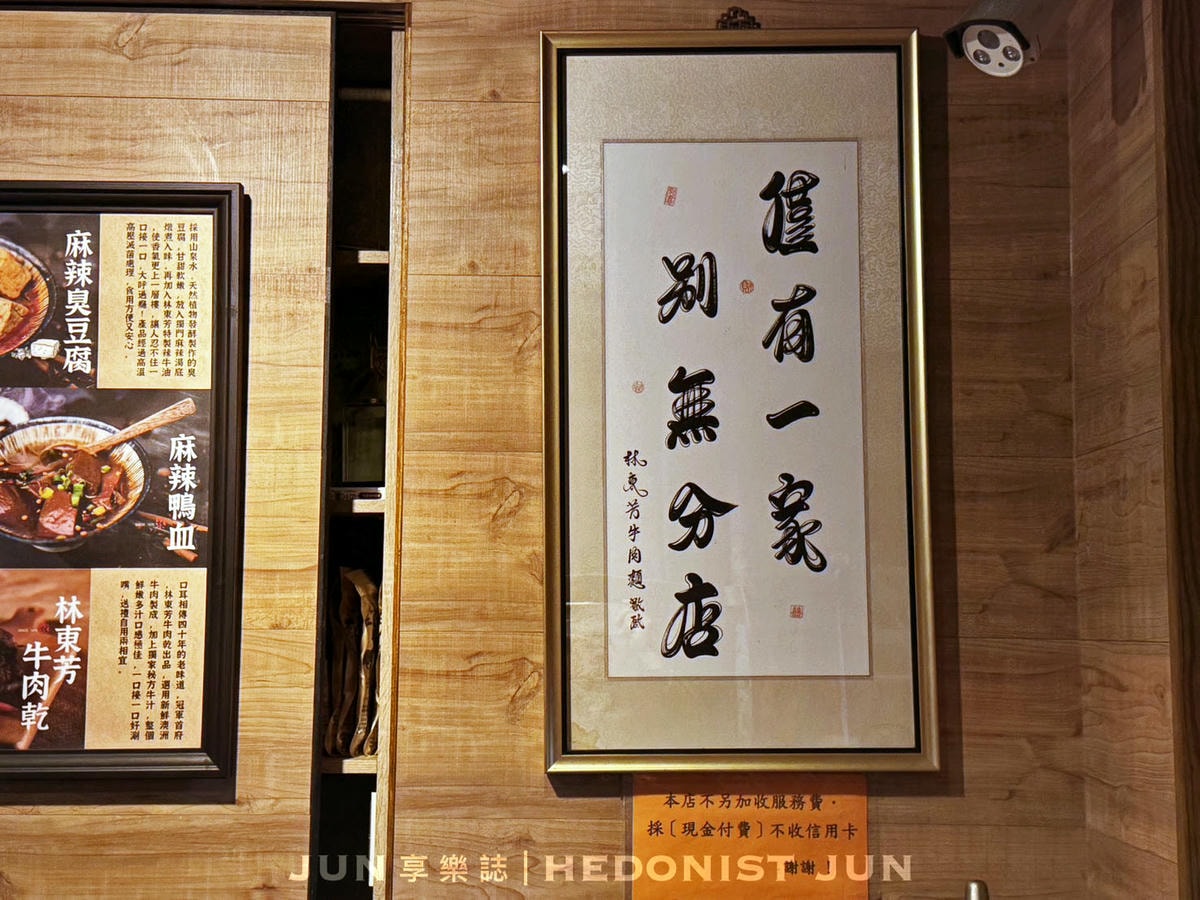 麻辣臭豆腐
採用山泉水，天然植物發酵製作的臭
豆腐，甘甜軟嫩，放入獨門麻辣湯底
燉煮入味，再加入林東芳特製辣牛油
，使香氣更上一層樓，讓人忍不住一
口接一口，大呼過癮！產品經過高溫
高壓滅菌處理，食用方便又安心。
麻辣鴨血
林東芳
牛肉乾
口耳相傳四十年的老味道，冠軍首府
，林東芳牛肉乾出品，選用新鮮澳洲
牛肉製成，加上獨家秘方牛汁，整個
鮮嫩多汁口感極佳，一口接一口好涮
嘴，送禮自用兩相宜。
僅有一家
別無分店
林東芳牛肉麵敬啟
本店不另加收服務費。
採〔現金付費〕不收信用卡
謝謝！
JUN享樂誌|HEDONIST JUN